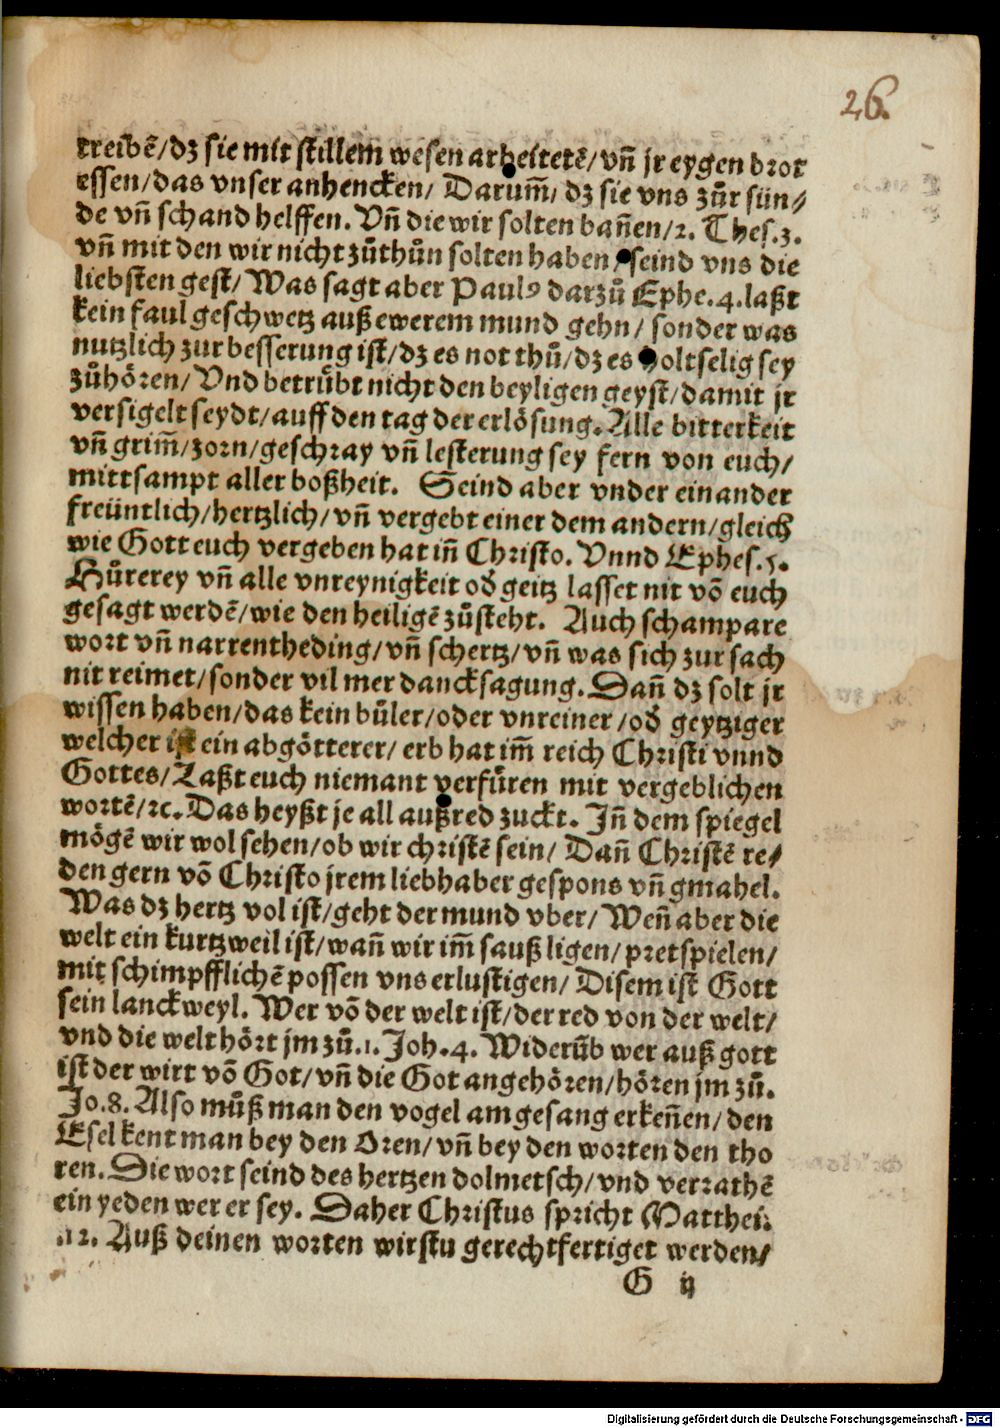 26.
treibē/dz sie mit stillem wesen arbeitetē/vn̄ jr eygen brot
essen/das vnser anhencken/ Darum̄/ dz sie vns zůr sün/
de vn̄ schand helffen. Vn̄ die wir solten ban̄en/2. Thes.3.
vn̄ mit den wir nicht zůthůn solten haben/ seind vns die
liebsten gest/ Was sagt aber Paulꝰ darzů Ephe.4.laßt
kein faul geschwetz auß ewerem mund gehn/ sonder was
nutzlich zur besserung ist/dz es not thů/dz es holtselig sey
zůhören/ Vnd betrübt nicht den heyligen geyst/damit jr
versigelt seydt/auff den tag der erlösung. Alle bitterkeit
vn̄ grim̄/zorn/geschray vn̄ lesterung sey fern von euch/
mittsampt aller boßheit. Seind aber vnder einander
freüntlich/hertzlich/vn̄ vergebt einer dem andern/gleich
wie Gott euch vergeben hat in̄ Christo. Vnnd Ephes.5.
Hůrerey vn̄ alle vnreynigkeit od̓ geitz lasset nit vō euch
gesagt werdē/wie den heiligē zůsteht. Auch schampare
wort vn̄ narrentheding/vn̄ schertz/vn̄ was sich zur sach
nit reimet/sonder vil mer dancksagung. Dan̄ dz solt jr
wissen haben/das kein bůler/oder vnreiner/od̓ geytziger
welcher ist ein abgötterer/ erb hat im̄ reich Christi vnnd
Gottes/ Laßt euch niemant verfüren mit vergeblichen
wortē/ꝛc. Das heyßt je all außred zuckt. Jn̄ dem spiegel
mögē wir wol sehen/ob wir christē sein/ Dan̄ Christē re/
den gern vō Christo jrem liebhaber gespons vn̄ gmahel.
Was dz hertz vol ist/geht der mund vber/ Wen̄ aber die
welt ein kurtzweil ist/wan̄ wir im̄ sauß ligen/pretspielen/
mit schimpfflichē possen vns erlustigen/ Disem ist Gott
sein lanckweyl. Wer vō der welt ist/der red von der welt/
vnd die welt hört jm zů.1. Joh.4. Widerūb wer auß gott
ist der wirt vō Got/vn̄ die Got angehören/hören jm zů.
Jo.8. Also můß man den vogel am gesang erken̄en/den
Esel kent man bey den Oren/vn̄ bey den worten den tho
ren. Die wort seind des hertzen dolmetsch/vnd verrathē
ein yeden wer er sey. Daher Christus spricht Matthei.
.12. Auß deinen worten wirstu gerechtfertiget werden/
G ij
Digitalisierung gefördert durch die Deutsche Forschungsgemeinschaft - DFG